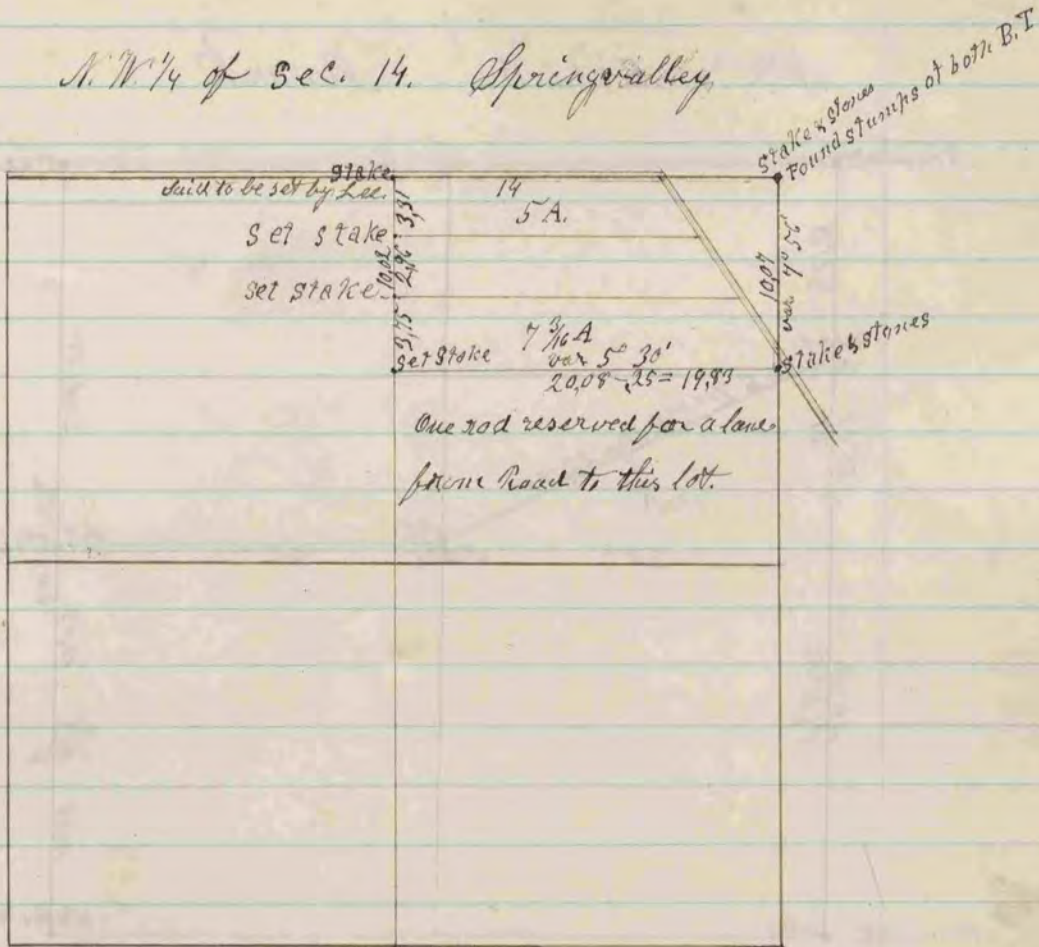 N. W. 1/4 of Sec. 14. Springvalley
Stake & stones
Found stumps of both B.T
Stake
Said to be set by Lee.
14
5 A.
3,31
Set Stake
10,02
2,96
Set Stake
3,75
10,07
var 4° 56'
Set Stake
7 3/16 A
var 5° 30'
20,08 - ,25 = 19,83
Stake & stones
One rod reserved for a lane
from Road to this lot.